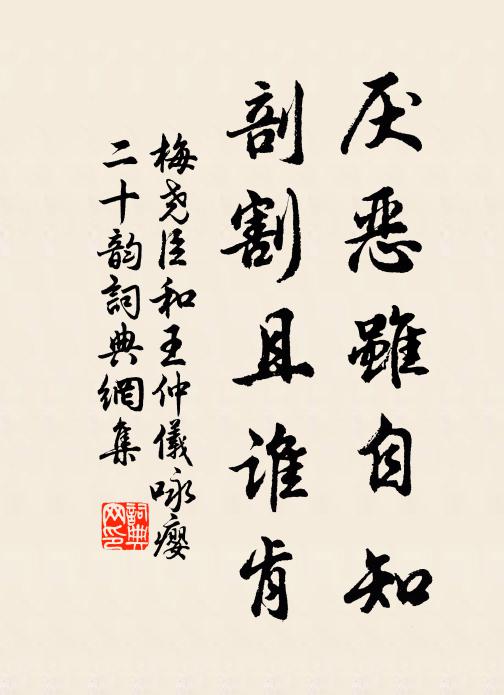 厌恶雖自知
剖割且谁肯
梅尧臣和王仲儀咏瘿
二十韵詞典網集
詞典
网印